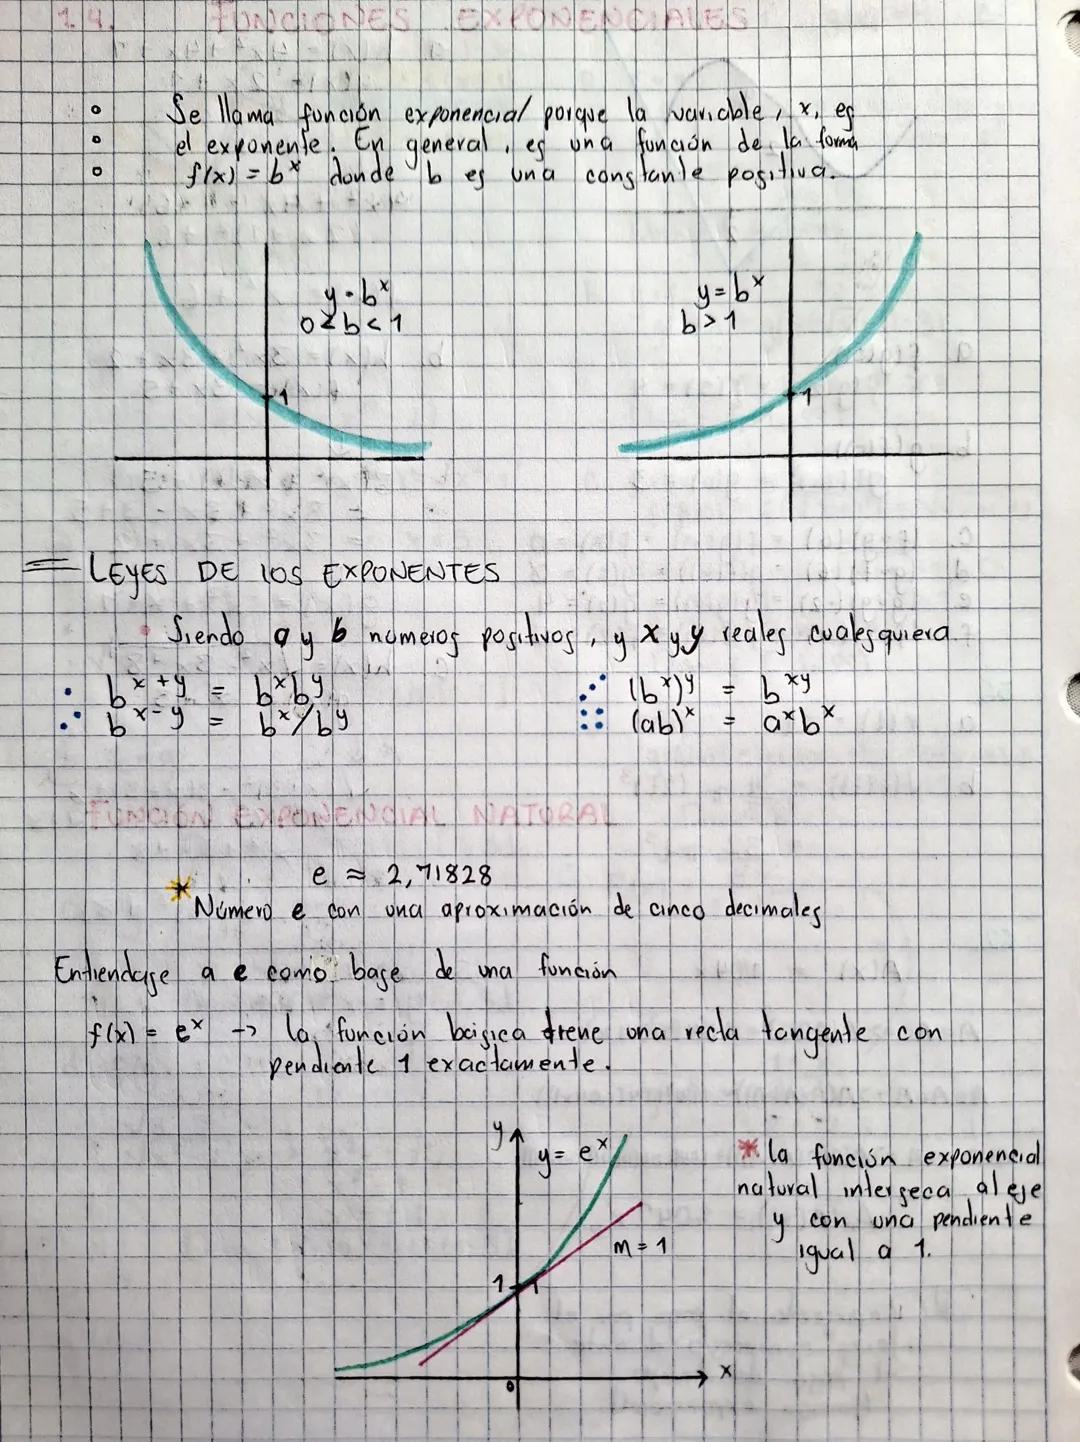 1.4. FUNCIONES EXPONENCIALES
Se llama función exponencial porque la variable, x, es
el exponente. En general, es una función de la forma
f(x) = bˣ donde b es una constante positiva.
y = bˣ
0 < b < 1
1
y = bˣ
b > 1
1
LEYES DE LOS EXPONENTES
Siendo a y b números positivos, y x y y reales cualesquiera
bˣ⁺ʸ = bˣbʸ
bˣ⁻ʸ = bˣ/bʸ
(bˣ)ʸ = bˣʸ
(ab)ˣ = aˣbˣ
FUNCIÓN EXPONENCIAL NATURAL
e ≈ 2,71828
* Número e con una aproximación de cinco decimales
Entiendase a e como base de una función
f(x) = eˣ → la función básica tiene una recta tangente con
pendiente 1 exactamente.
y
y = eˣ
m = 1
1
0
x
* la función exponencial
natural interseca al eje
y con una pendiente
igual a 1.